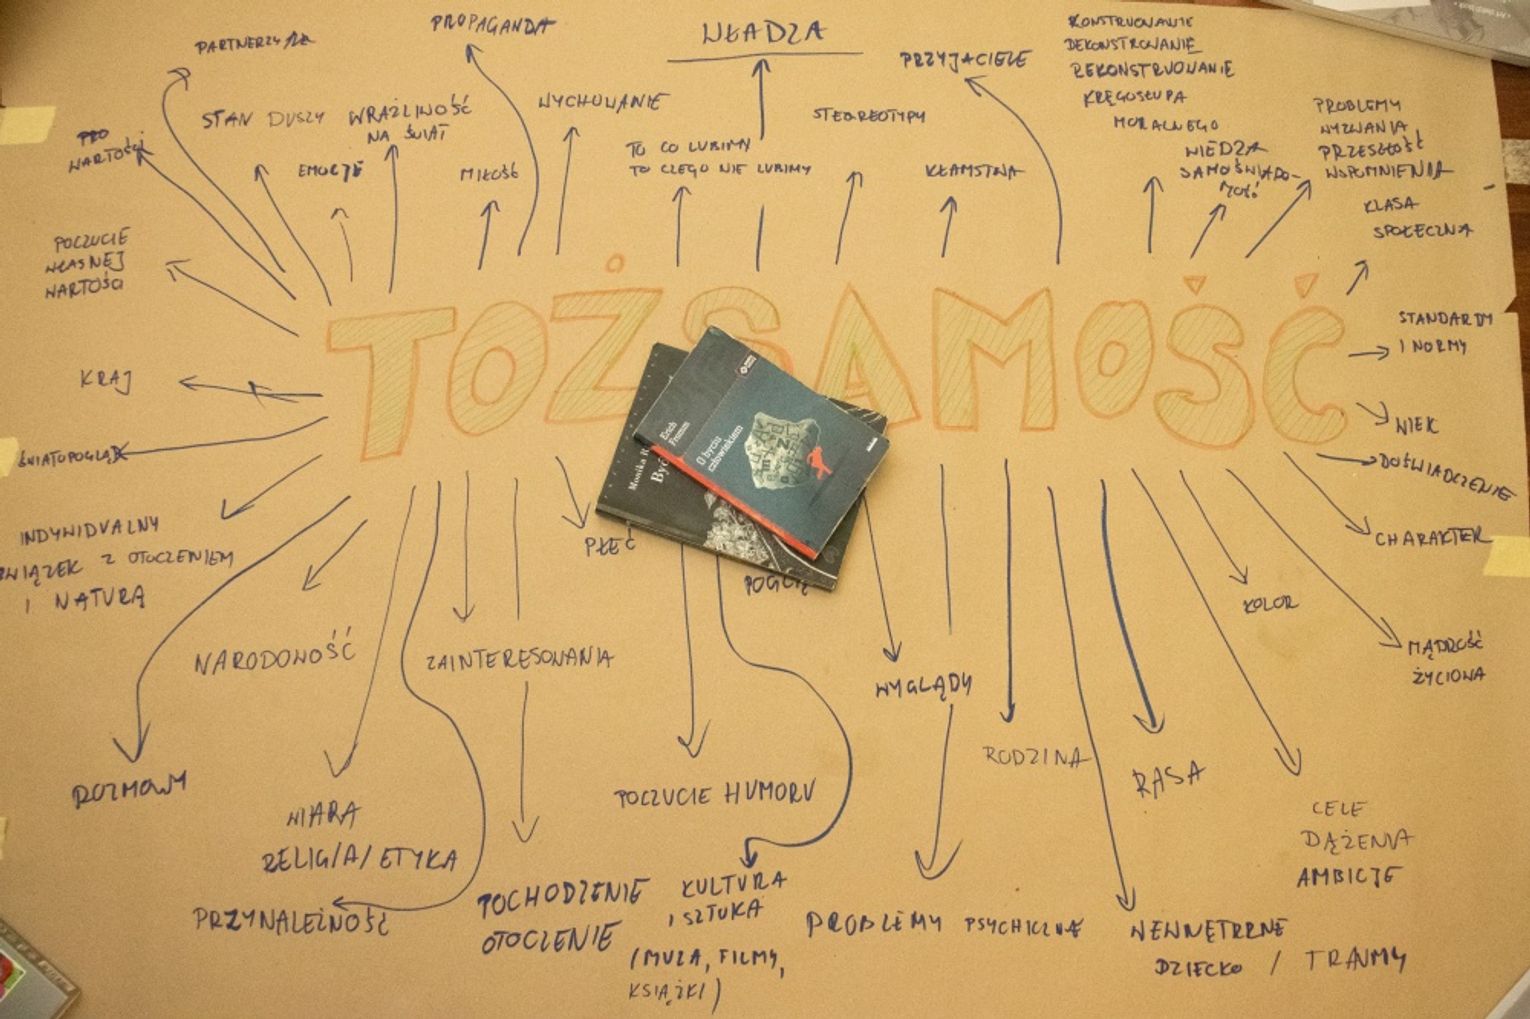 PARTNERZY/RZ
PROPAGANDA
WŁADZA
PRZYJACIELE
KONSTRUOWANIE
DEKONSTROWANIE
REKONSTRUOWANIE
KRĘGOSŁUPA
MORALNEGO
STAN DUSZY
WRAŻLIWOŚĆ
NA ŚWIAT
WYCHOWANIE
STEREOTYPY
PROBLEMY
WYZWANIA
PRZESZŁOŚĆ
WSPOMNIENIA
PRO
WARTOŚCI
EMOCJE
MIŁOŚĆ
TO CO LUBIMY
TO CZEGO NIE LUBIMY
KŁAMSTWA
WIEDZA
SAMOŚWIADO-
MOŚĆ
KLASA
SPOŁECZNA
POCZUCIE
WŁASNEJ
WARTOŚCI
TOŻSAMOŚĆ
STANDARDY
I NORMY
KRAJ
WIEK
ŚWIATOPOGLĄD
DOŚWIADCZENIE
Erich
Fromm
O byciu
człowiekiem
Monika R
Być
INDYWIDUALNY
ZWIĄZEK Z OTOCZENIEM
I NATURĄ
PŁEĆ
CHARAKTER
KOLOR
NARODOWOŚĆ
ZAINTERESOWANIA
WYGLĄDY
MĄDROŚĆ
ŻYCIOWA
ROZMOWY
RODZINA
RASA
POCZUCIE HUMORU
WIARA
RELIGIA/ETYKA
CELE
DĄŻENIA
AMBICJE
PRZYNALEŻNOŚĆ
POCHODZENIE
OTOCZENIE
KULTURA
I SZTUKA
(MUZA, FILMY,
KSIĄŻKI)
PROBLEMY PSYCHICZNE
WEWNĘTRZNE
DZIECKO / TRAUMY